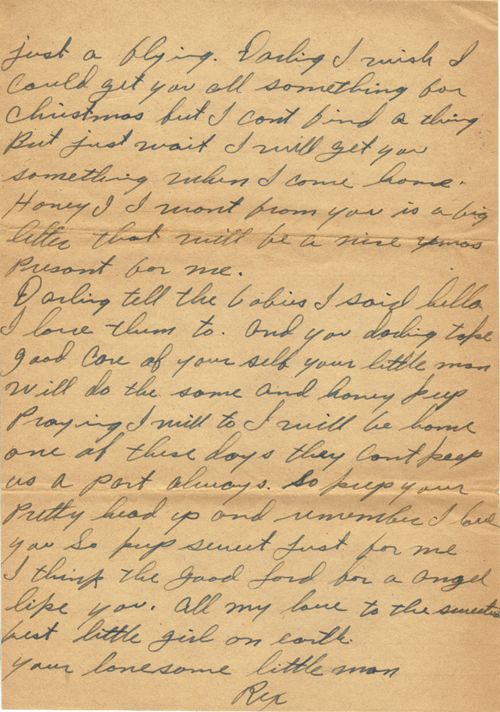 just a flying. Darling I wish I
Could get you all something for
Christmas but I cant find a thing
But just wait I will get you
something when I come home.
Honey I I want from you is a big
litter that will be a nice xmas
Presant for me.
Darling tell the babies I said hello
I love them to. And you darling take
good Care of your self your little man
will do the same and honey keep
Praying I will to I will be home
one of these days they cant keep
us a part always. So keep your
Pretty head up and remember I love
you So keep sweet Just for me
I think the good Lord for a angel
like you. All my love to the sweetest
best little girl on earth.
your lonesome little man
Rex